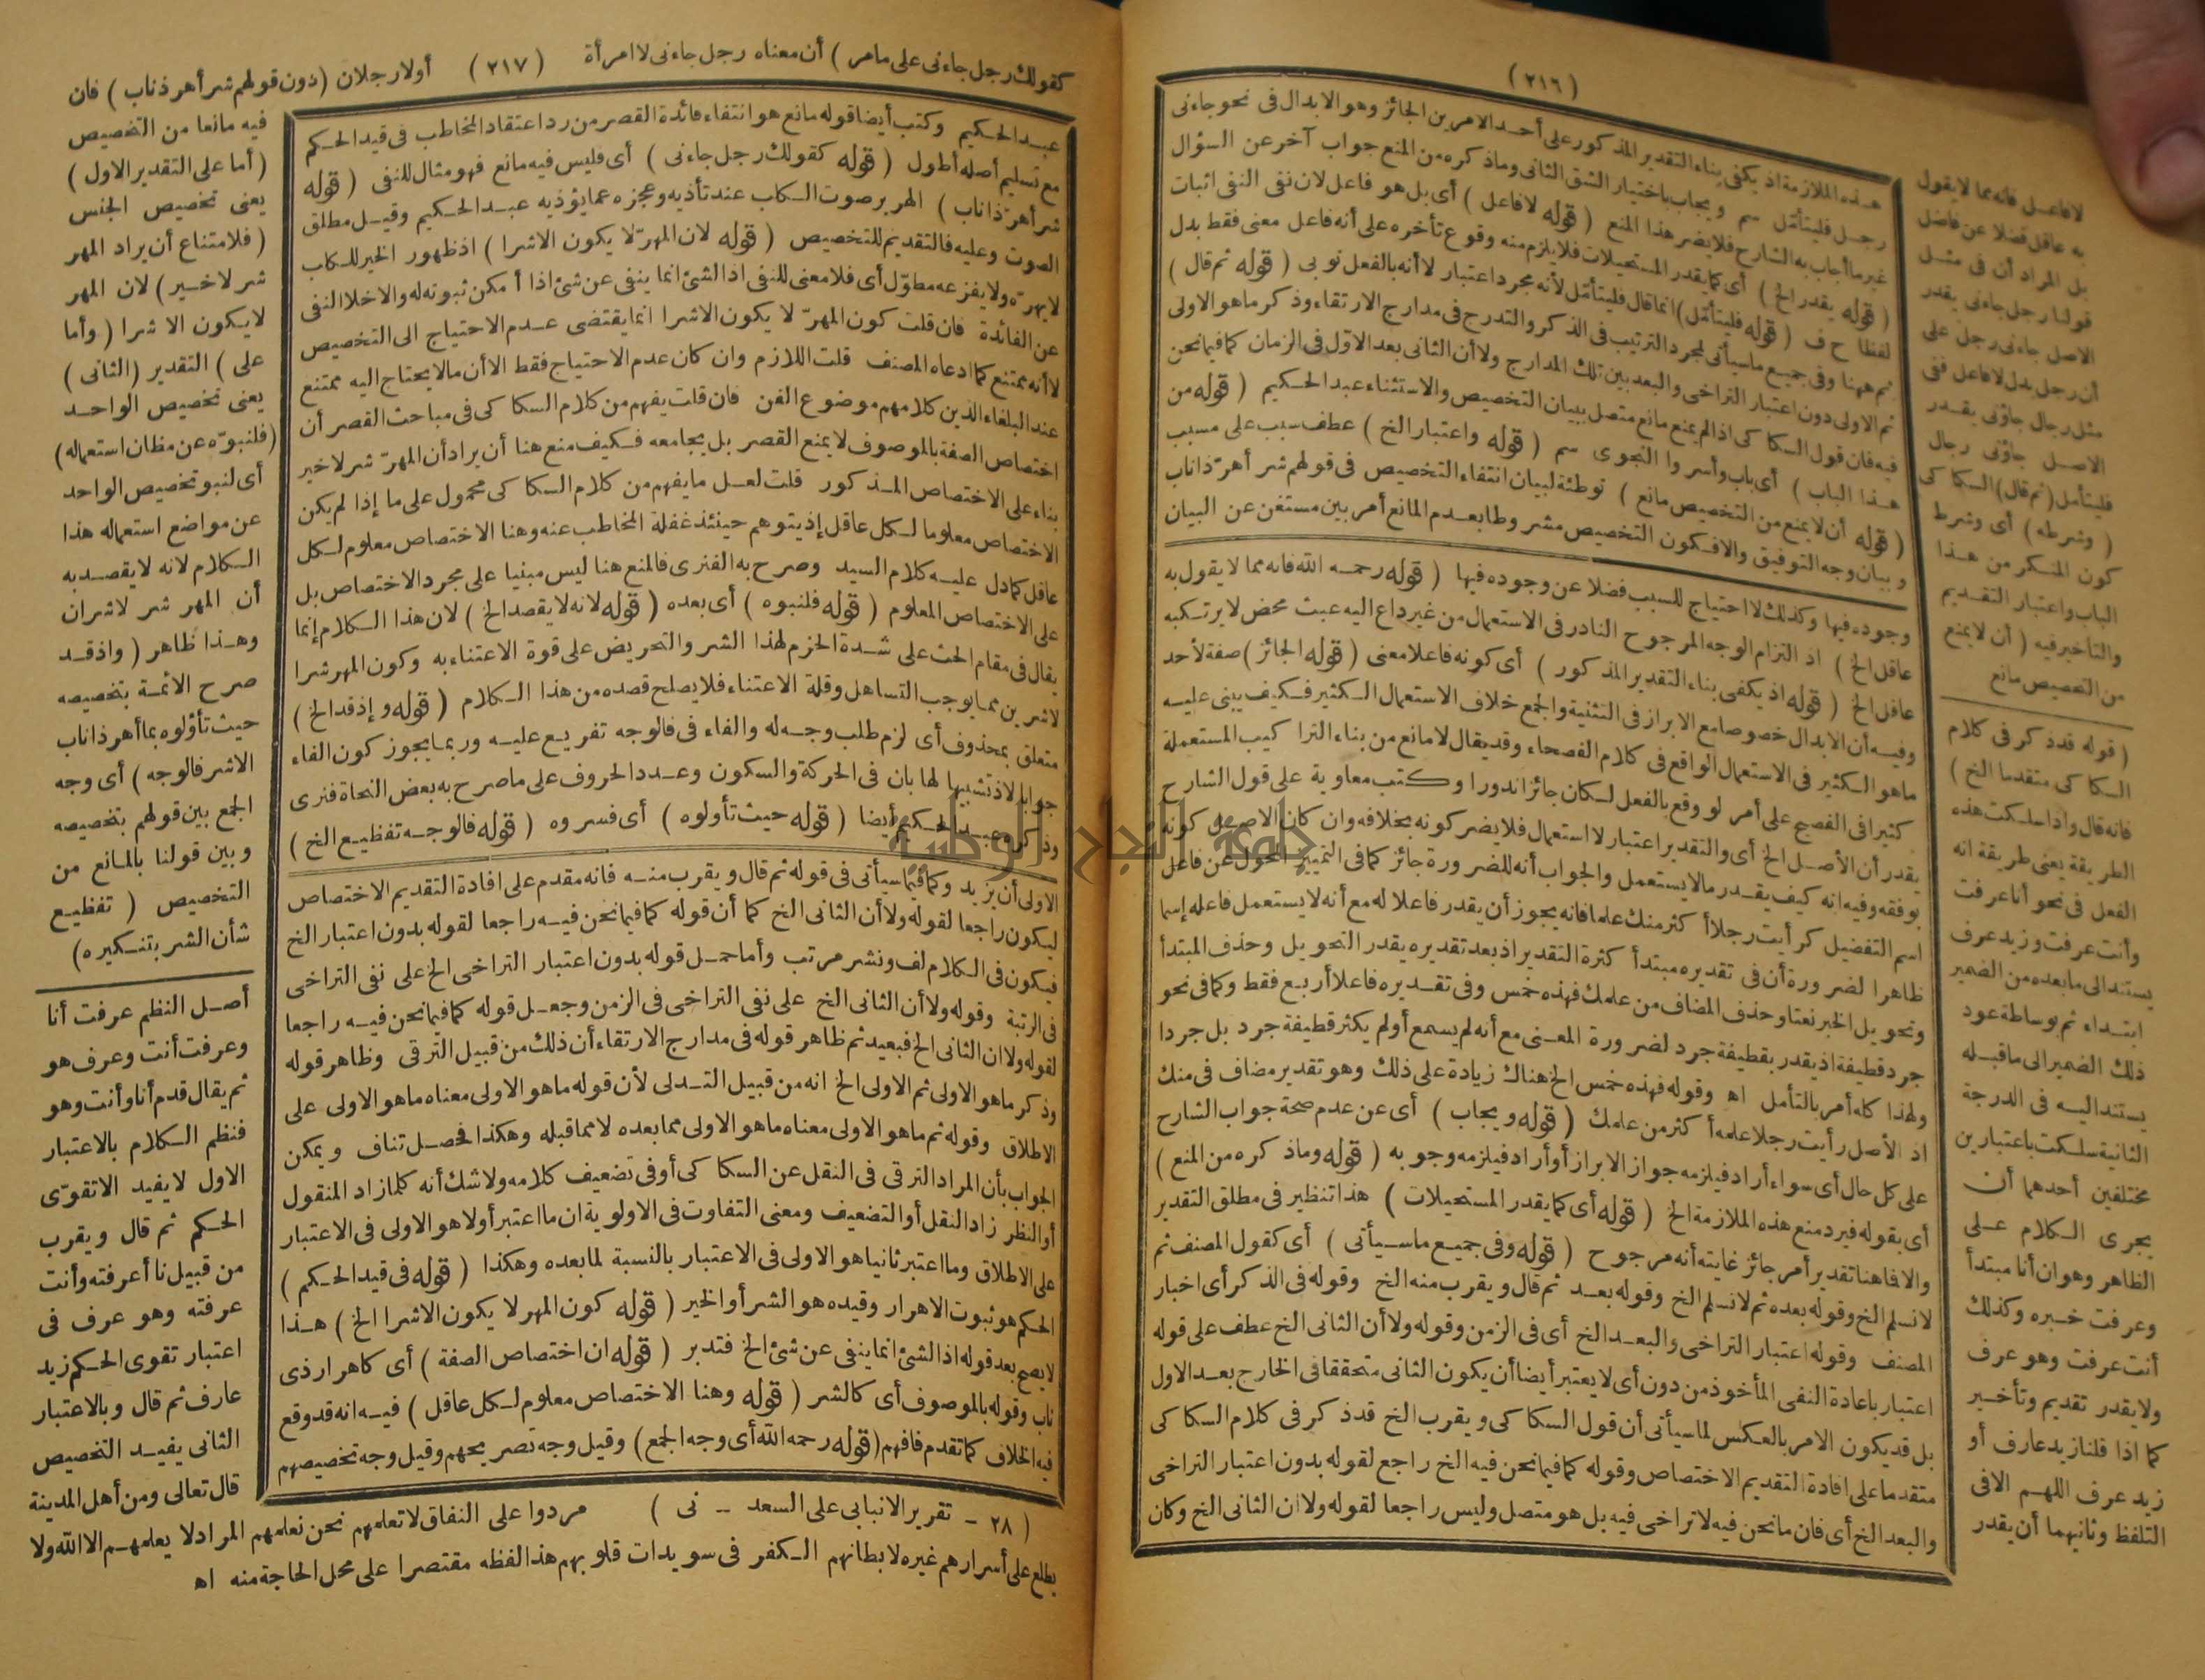 (٢١٦)
هذه الملازمة اذ يكفى بناء التقدير المذكور على أحد الامرين الجائز وهو الابدال فى نحو جاءنى
رجل فليتأمل سم ويجاب باختيار الشق الثانى وما ذكره من المنع جواب آخر عن السؤال
غير ما أجاب به الشارح فلا يضر هذا المنع (قوله لا فاعل) أى بل هو فاعل لان نفى النفى اثبات
(قوله يقدر الخ) أى كما يقدر المستحيلات فلا يلزم منه وقوع تأخره على أنه فاعل معنى فقط بدل
لفظا ح ف (قوله فليتأمل) انما قال فليتأمل لأنه مجرد اعتبار لا أنه بالفعل نوبى (قوله ثم قال)
ثم ههنا وفى جميع ما سيأتى لمجرد الترتيب فى الذكر والتدرج فى مدارج الارتقاء وذكر ما هو الاولى
ثم الاولى دون اعتبار التراخى والبعد بين تلك المدارج ولا أن الثانى بعد الاول فى الزمان كما فيما نحن
فيه فان قول السكاكى اذا لم يمنع مانع متصل ببيان التخصيص والاستثناء عبد الحكيم (قوله من
هذا الباب) أى باب وأسروا النجوى سم (قوله واعتبار الخ) عطف سبب على مسبب
(قوله أن لا يمنع من التخصيص مانع) توطئة لبيان انتفاء التخصيص فى قولهم شر أهر ذا ناب
وبيان وجه التوفيق والا فكون التخصيص مشروطا بعدم المانع أمر بين مستغن عن البيان
وجوده فيها وكذلك لا احتياج للسبب فضلا عن وجوده فيها (قوله رحمه الله فانه مما لا يقول به
عاقل الخ) اذ التزام الوجه المرجوح النادر فى الاستعمال من غير داع اليه عبث محض لا يرتكبه
عاقل الخ (قوله اذ يكفى بناء التقدير المذكور) أى كونه فاعلا معنى (قوله الجائز) صفة لأحد
وفيه أن الابدال خصوصا مع الابراز فى التثنية والجمع خلاف الاستعمال الكثير فكيف يبنى عليه
ما هو الكثير فى الاستعمال الواقع فى كلام الفصحاء وقد يقال لا مانع من بناء التراكيب المستعملة
كثيرا فى الفصيح على أمر لو وقع بالفعل لكان جائزا ندورا وكتب معاوية على قول الشارح
يقدر أن الأصل الخ أى والتقدير اعتبار لا استعمال فلا يضر كونه بخلافه وان كان الاصل كونه
بوفقه وفيه انه كيف يقدر ما لا يستعمل والجواب أنه للضرورة جائز كما فى التمييز المحول عن فاعل
اسم التفضيل كرأيت رجلا أكثر منك علما فانه يجوز أن يقدر فاعلا له مع أنه لا يستعمل فاعله إسما
ظاهرا لضرورة أن فى تقديره مبتدأ كثرة التقدير اذ بعد تقديره يقدر التحويل وحذف المبتدأ
وتحويل الخبر نعتا وحذف المضاف من علمك فهذه خمس وفى تقديره فاعلا أربع فقط وكما فى نحو
جرد قطيفة اذ يقدر بقطيفة جرد لضرورة المعنى مع أنه لم يسمع أو لم يكثر قطيفة جرد بل جردا
ولهذا كله أمر بالتأمل اه وقوله فهذه خمس الخ هناك زيادة على ذلك وهو تقدير مضاف فى منك
اذ الأصل رأيت رجلا علمه أكثر من علمك (قوله ويجاب) أى عن عدم صحة جواب الشارح
على كل حال أى سواء أراد فيلزمه جواز الابراز أو أراد فيلزمه وجوبه (قوله وما ذكره من المنع)
أى بقوله فيرد منع هذه الملازمة الخ (قوله أى كما يقدر المستحيلات) هذا تنظير فى مطلق التقدير
والا فاهنا تقدير أمر جائز غايته أنه مرجوح (قوله وفى جميع ما سيأتى) أى كقول المصنف ثم
لا نسلم الخ وقوله بعده ثم لا نسلم الخ وقوله بعد ثم قال ويقرب منه الخ وقوله فى الذكر أى اخبار
المصنف وقوله اعتبار التراخى والبعد الخ أى فى الزمن وقوله ولا أن الثانى الخ عطف على قوله
اعتبار باعادة النفى المأخوذ من دون أى لا يعتبر أيضا أن يكون الثانى متحققا فى الخارج بعد الاول
بل قد يكون الامر بالعكس لما سيأتى أن قول السكاكى ويقرب الخ قد ذكر فى كلام السكاكى
متقدما على افادة التقديم الاختصاص وقوله كما فيما نحن فيه الخ راجع لقوله بدون اعتبار التراخى
والبعد الخ أى فان ما نحن فيه لا تراخى فيه بل هو متصل وليس راجعا لقوله ولا ان الثانى الخ وكان
لا فاعل فانه مما لا يقول
به عاقل فضلا عن فاضل
بل المراد أن فى مثل
قولنا رجل جاءنى يقدر
الاصل جاءنى رجل على
أن رجل بدل لا فاعل ففى
مثل رجال جاؤنى يقدر
الاصل جاؤنى رجال
فليتأمل (ثم قال) السكاكى
(وشرطه) أى وشرط
كون المنكر من هذا
الباب واعتبار التقديم
والتأخير فيه (أن لا يمنع
من التخصيص مانع
(قوله قد ذكر فى كلام
السكاكى متقدما الخ)
فانه قال واذا سلكت هذه
الطريقة يعنى طريقة انه
الفعل فى نحو أنا عرفت
وأنت عرفت وزيد عرف
يستند الى ما بعده من الضمير
ابتداء ثم بوساطة عود
ذلك الضمير الى ما قبله
يستند اليه فى الدرجة
الثانية سلكت باعتبارين
مختلفين أحدهما أن
يجرى الكلام على
الظاهر وهو ان أنا مبتدأ
وعرفت خبره وكذلك
أنت عرفت وهو عرف
ولا يقدر تقديم وتأخير
كما اذا قلنا زيد عارف أو
زيد عرف اللهم الا فى
التلفظ وثانيهما أن يقدر
كقولك رجل جاءنى على ما مر) أن معناه رجل جاءنى لا امرأة (٢١٧) أو لا رجلان (دون قولهم شر أهر ذا ناب) فان
عبد الحكيم وكتب أيضا قوله مانع هو انتفاء فائدة القصر من رد اعتقاد المخاطب فى قيد الحكم
مع تسليم أصله أطول (قوله كقولك رجل جاءنى) أى فليس فيه مانع فهو مثال للنفى (قوله
شر أهر ذا ناب) الهرير صوت الكلب عند تأذيه وعجزه عما يؤذيه عبد الحكيم وقيل مطلق
الصوت وعليه فالتقديم للتخصيص (قوله لان المهر لا يكون الا شرا) اذ ظهور الخير للكلب
لا يهره ولا يفزعه مطول أى فلا معنى للنفى اذ الشئ انما ينفى عن شئ اذا أمكن ثبوته له والا خلا النفى
عن الفائدة فان قلت كون المهر لا يكون الا شرا انما يقتضى عدم الاحتياج الى التخصيص
لا أنه ممتنع كما ادعاه المصنف قلت اللازم وان كان عدم الاحتياج فقط الا أن ما لا يحتاج اليه ممتنع
عند البلغاء الذين كلامهم موضوع الفن فان قلت يفهم من كلام السكاكى فى مباحث القصر أن
اختصاص الصفة بالموصوف لا يمنع القصر بل يجامعه فكيف منع هنا أن يراد أن المهر شر لا خير
بناء على الاختصاص المذكور قلت لعل ما يفهم من كلام السكاكى محمول على ما إذا لم يكن
الاختصاص معلوما لكل عاقل إذ يتوهم حينئذ غفلة المخاطب عنه وهنا الاختصاص معلوم لكل
عاقل كما دل عليه كلام السيد وصرح به الفنرى فالمنع هنا ليس مبنيا على مجرد الاختصاص بل
على الاختصاص المعلوم (قوله فلنبوه) أى بعده (قوله لانه لا يقصد الخ) لان هذا الكلام إنما
يقال فى مقام الحث على شدة الحزم لهذا الشر والتحريض على قوة الاعتناء به وكون المهر شرا
لا شرين مما يوجب التساهل وقلة الاعتناء فلا يصلح قصده من هذا الكلام (قوله وإذ قد الخ)
متعلق بمحذوف أى لزم طلب وجه له والفاء فى فالوجه تفريع عليه وربما يجوز كون الفاء
جوابا لاذ تشبيها لها بان فى الحركة والسكون وعدد الحروف على ما صرح به بعض النحاة فنرى
وذكره عبد الحكيم أيضا (قوله حيث تأولوه) أى فسروه (قوله فالوجه تفظيع الخ)
الاولى أن يزيد وكما فيما سيأتى فى قوله ثم قال ويقرب منه فانه مقدم على افادة التقديم الاختصاص
ليكون راجعا لقوله ولا أن الثانى الخ كما أن قوله كما فيما نحن فيه راجعا لقوله بدون اعتبار الخ
فيكون فى الكلام لف ونشر مرتب وأما حمل قوله بدون اعتبار التراخى الخ على نفى التراخى
فى الرتبة وقوله ولا أن الثانى الخ على نفى التراخى فى الزمن وجعل قوله كما فيما نحن فيه راجعا
لقوله ولا ان الثانى الخ فبعيد ثم ظاهر قوله فى مدارج الارتقاء أن ذلك من قبيل الترقى وظاهر قوله
وذكر ما هو الاولى ثم الاولى الخ انه من قبيل التدلى لأن قوله ما هو الاولى معناه ما هو الاولى على
الاطلاق وقوله ثم ما هو الاولى معناه ما هو الاولى مما بعده لا مما قبله وهكذا فحصل تناف ويمكن
الجواب بأن المراد الترقى فى النقل عن السكاكى أو فى تضعيف كلامه ولا شك أنه كلما زاد المنقول
أو النظر زاد النقل أو التضعيف ومعنى التفاوت فى الاولوية ان ما اعتبر أولا هو الاولى فى الاعتبار
على الاطلاق وما اعتبر ثانيا هو الاولى فى الاعتبار بالنسبة لما بعده وهكذا (قوله فى قيد الحكم)
الحكم هو ثبوت الاهرار وقيده هو الشر أو الخير (قوله كون المهر لا يكون الا شرا الخ) هذا
لا يصح بعد قوله اذ الشئ انما ينفى عن شئ الخ فتدبر (قوله ان اختصاص الصفة) أى كاهرار ذى
ناب وقوله بالموصوف أى كالشر (قوله وهنا الاختصاص معلوم لكل عاقل) فيه انه قد وقع
فيه الخلاف كما تقدم فافهم (قوله رحمه الله أى وجه الجمع) وقيل وجه تصريحهم وقيل وجه تخصيصهم
فيه مانعا من التخصيص
(أما على التقدير الاول)
يعنى تخصيص الجنس
(فلامتناع أن يراد المهر
شر لا خير) لان المهر
لا يكون الا شرا (وأما
على) التقدير (الثانى)
يعنى تخصيص الواحد
(فلنبوّه عن مظان استعماله)
أى لنبو تخصيص الواحد
عن مواضع استعماله هذا
الكلام لانه لا يقصد به
أن المهر شر لا شران
وهذا ظاهر (واذ قد
صرح الائمة بتخصيصه
حيث تأولوه بما أهر ذا ناب
الا شر فالوجه) أى وجه
الجمع بين قولهم بتخصيصه
وبين قولنا بالمانع من
التخصيص (تفظيع
شأن الشر بتنكيره)
أصل النظم عرفت أنا
وعرفت أنت وعرف هو
ثم يقال قدم أنا وأنت وهو
فنظم الكلام بالاعتبار
الاول لا يفيد الا تقوّى
الحكم ثم قال ويقرب
من قبيل نا أعرفته وأنت
عرفته وهو عرف فى
اعتبار تقوى الحكم زيد
عارف ثم قال وبالاعتبار
الثانى يفيد التخصيص
قال تعالى ومن أهل المدينة
(٢٨ - تقرير الانبابى على السعد - نى) مردوا على النفاق لا تعلمهم نحن نعلمهم المراد لا يعلمهم الا الله ولا
يطلع على أسرارهم غيره لابطانهم الكفر فى سويدات قلوبهم هذا لفظه مقتصرا على محل الحاجة منه اه
جامعة النجاح الوطنية